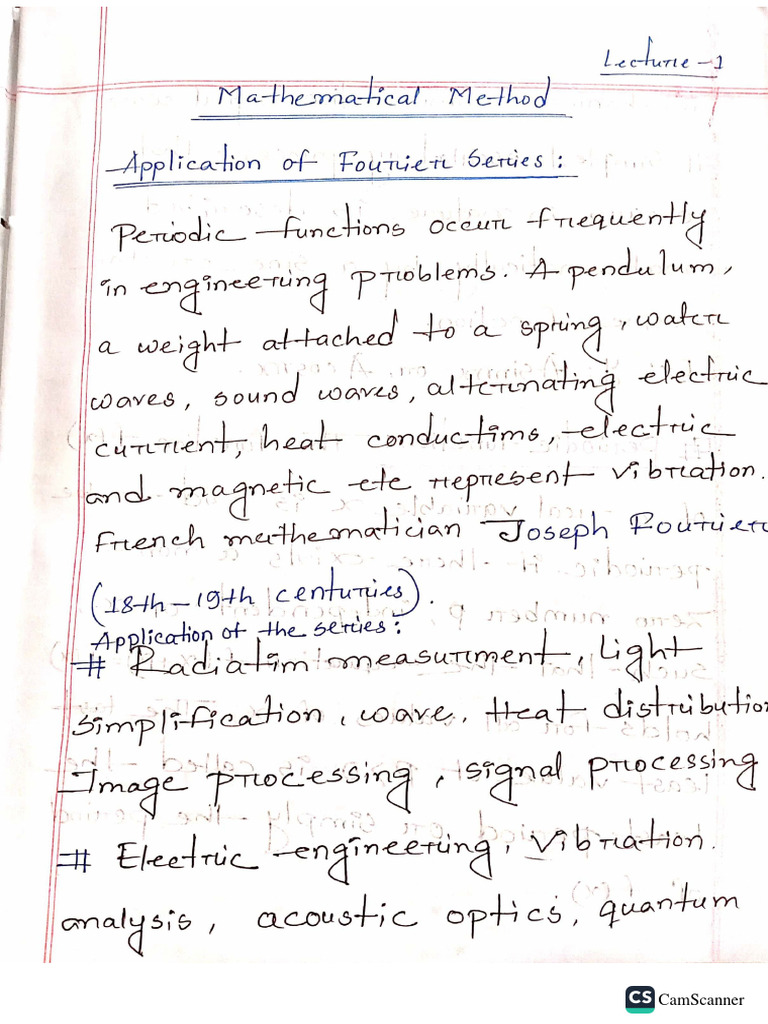 Lecture-1
Mathematical Method
Application of Fourier Series:
Periodic functions occur frequently
in engineering problems. A pendulum,
a weight attached to a spring, water
waves, sound waves, alternating electric
current, heat conductions, electric
and magnetic etc represent vibration.
French mathematician Joseph Fourier
(18th-19th centuries).
Application of the series:
# Radiation measurment, Light
simplification, wave, Heat distribution
Image processing, signal processing
# Electric engineering, Vibration.
analysis, acoustic optics, quantum
CS CamScanner